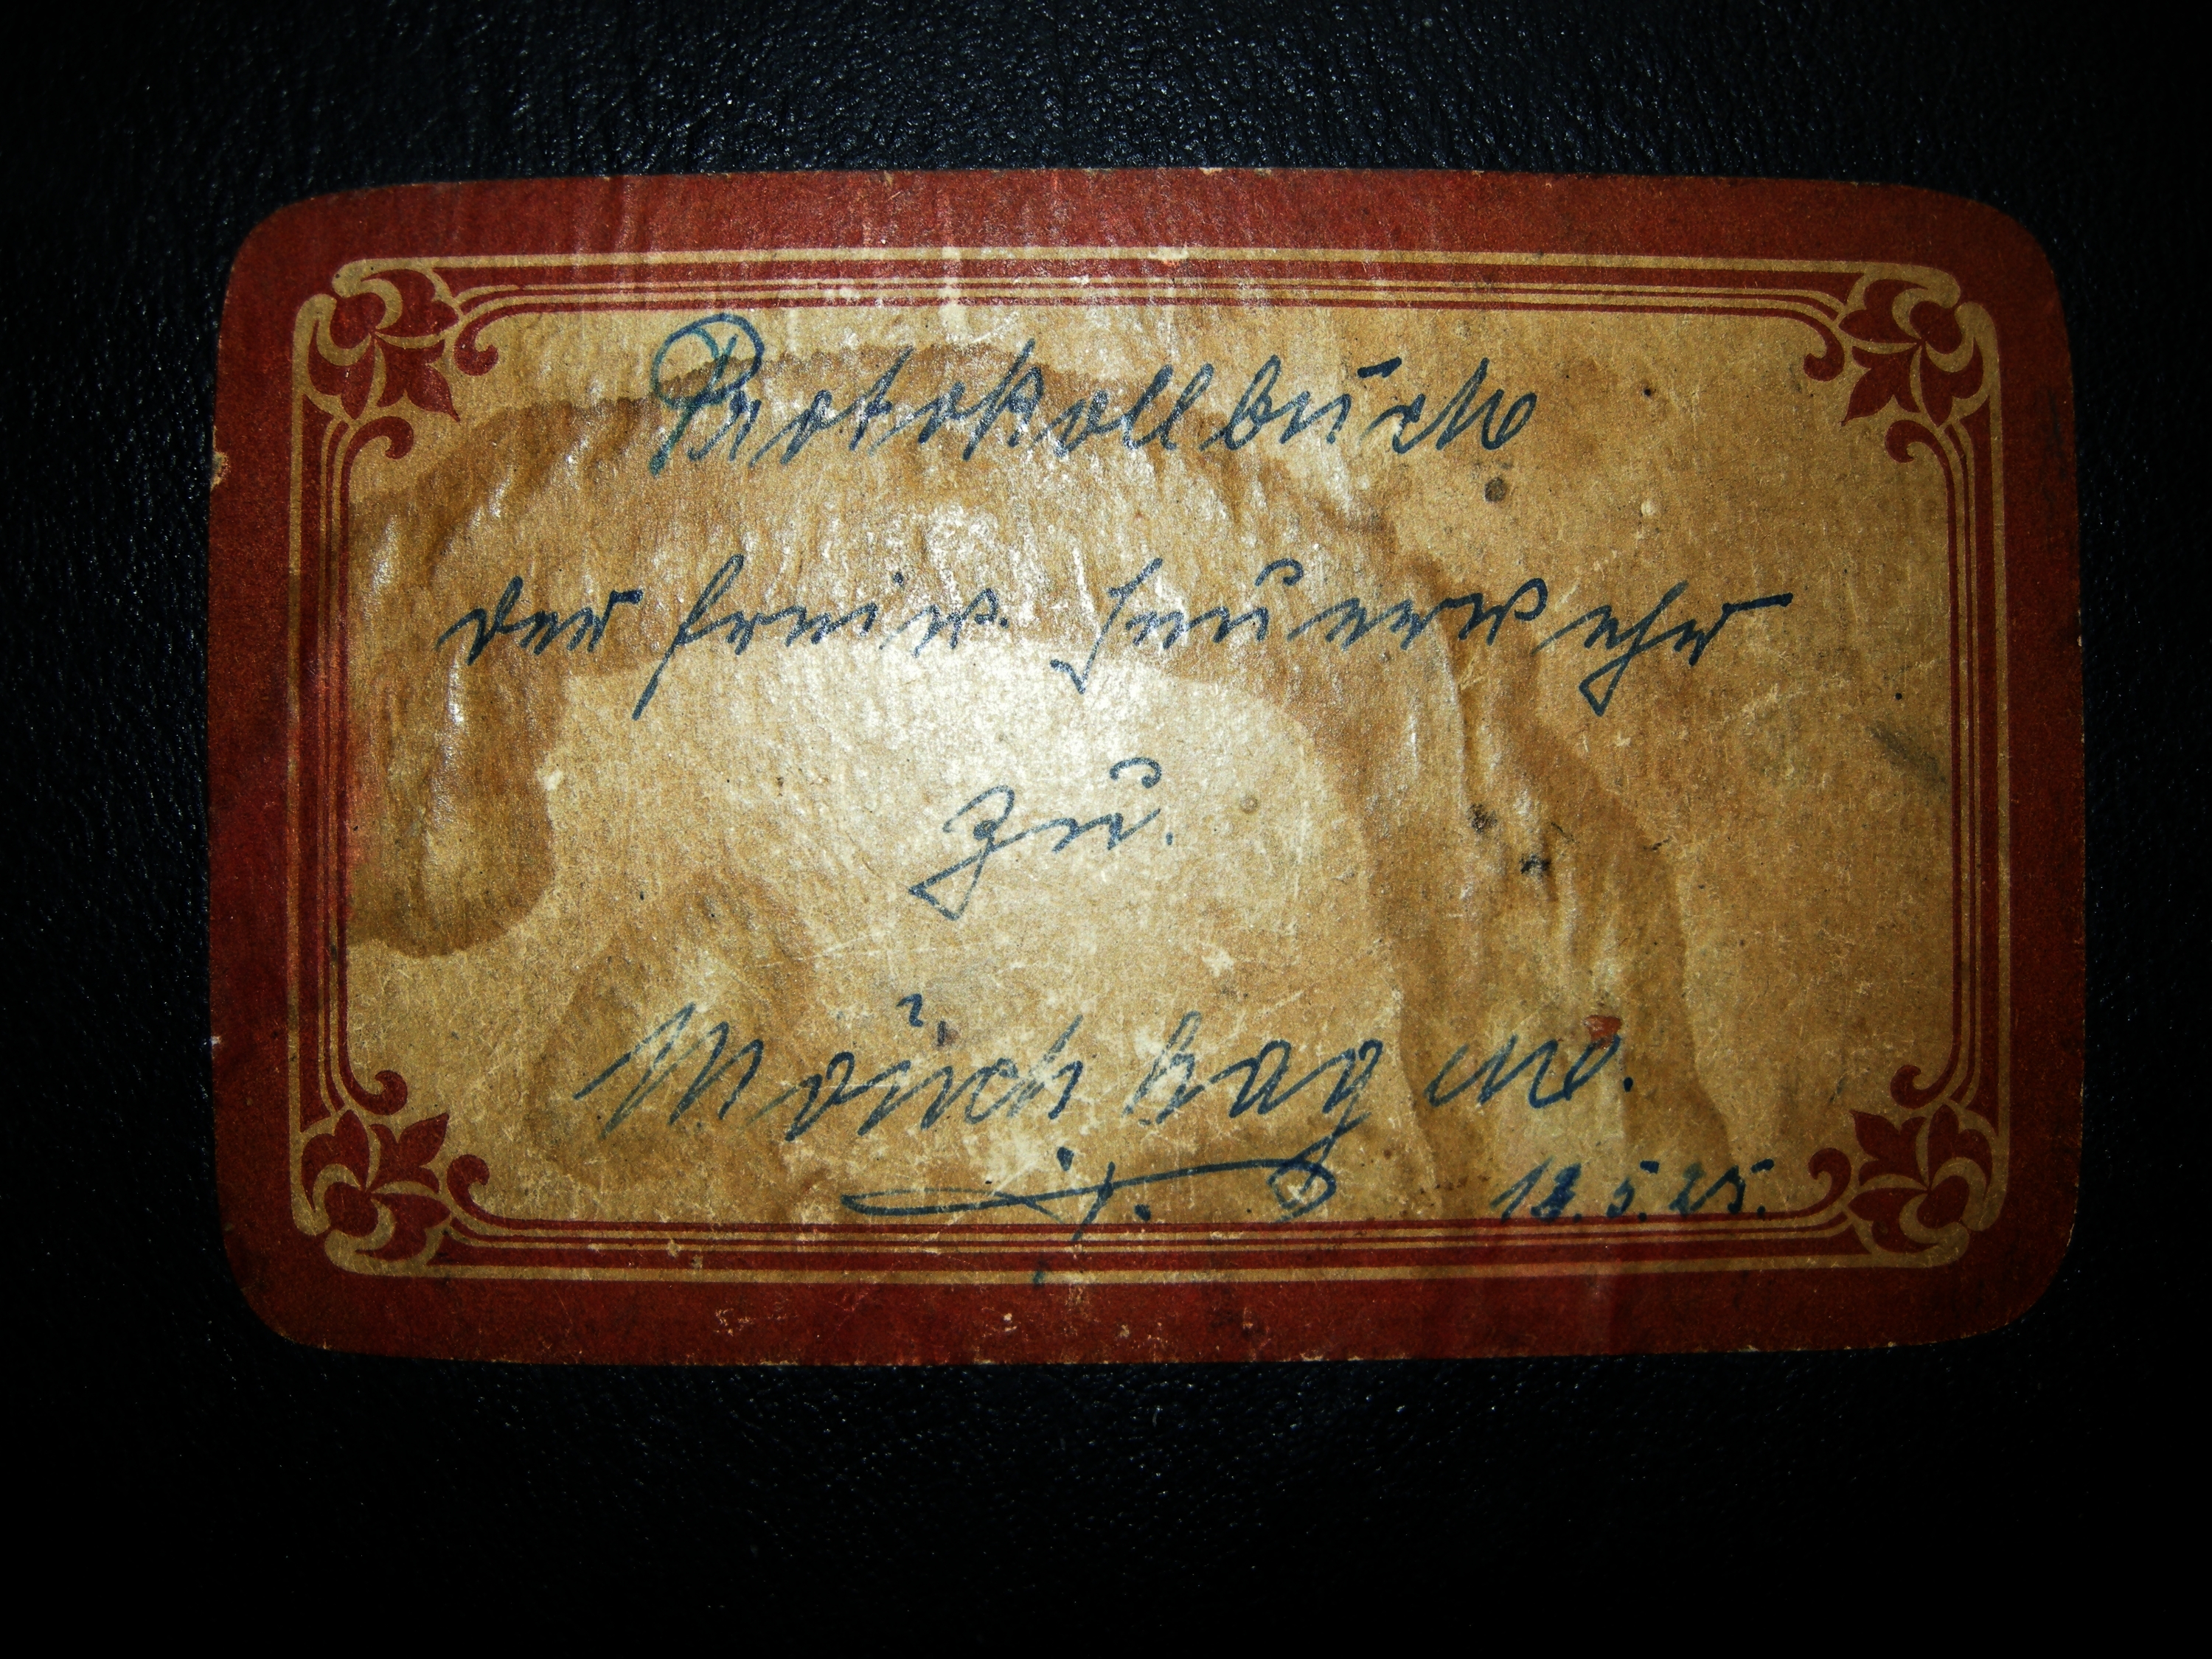 Protokollbuch
der freiw. Feuerwehr
zu.
Mönchhagen.
18.5.25.